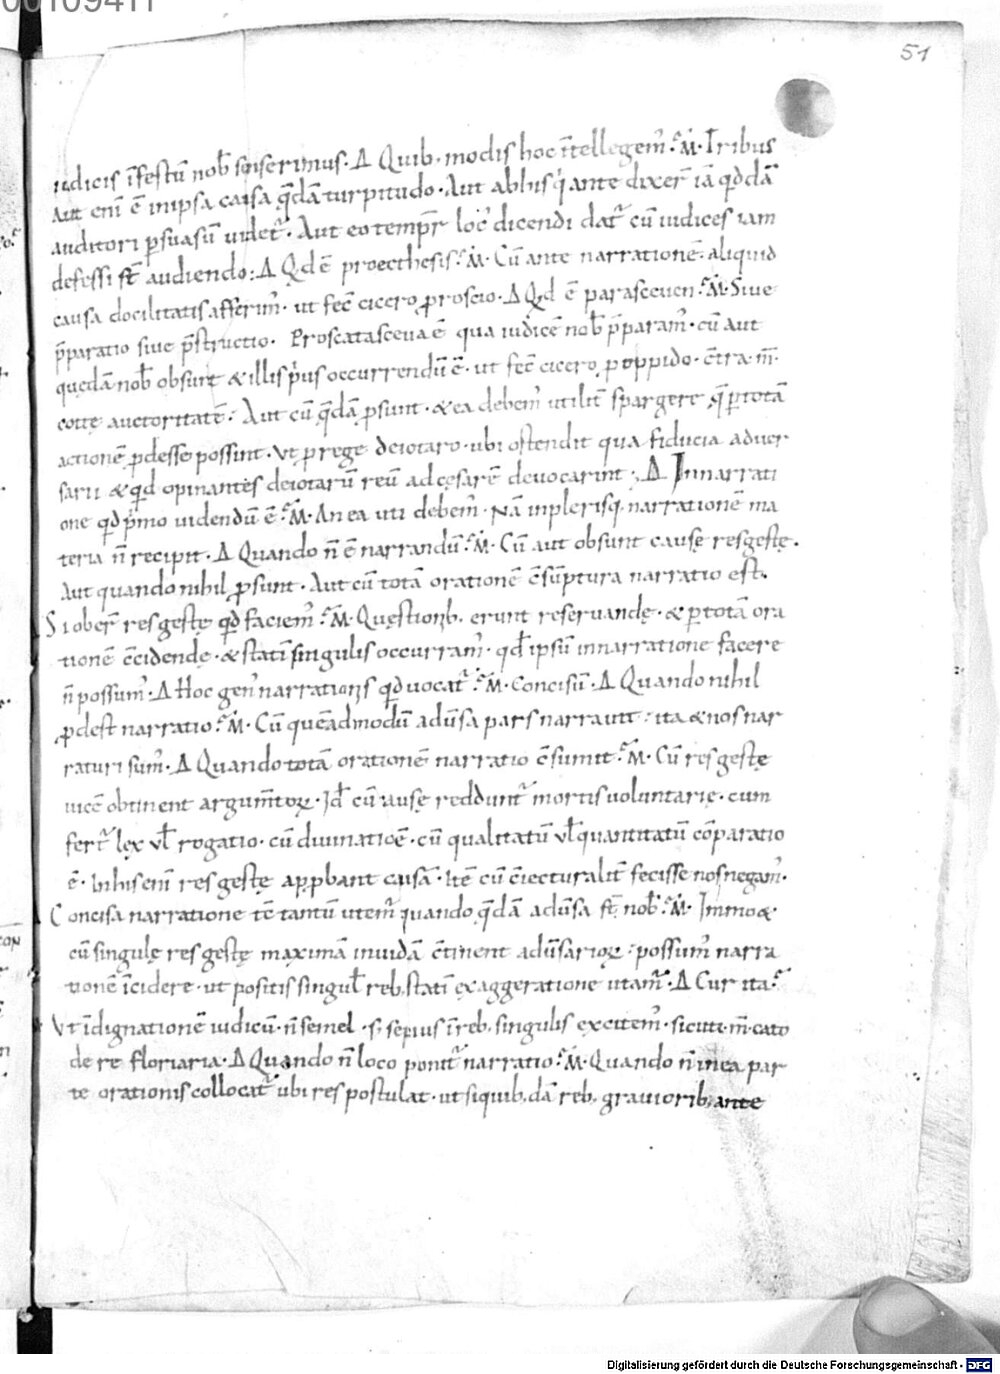 00109411
51
iudicis īfestū nob̄ senserimus · Δ Quib · modis hoc ītellegem̄ · M̄ · Tribus
aut eni ē in ipsa causa q̄dā turpitudo · Aut ab his q̄ ante dixer̄ iā qd̄dā
auditori psuasū uidet̄ · Aut eo tempr̄ loc̄ dicendi dat̄ cū iudices iam
defessi st̄ audiendo : Δ Qd ē proecthesis · M̄ · Cū ante narrationē · aliquid
causa docilitatis afferim̄ · ut fec̄ cicero p roscio · Δ Qd ē parasceuen · M̄ · Siue
p̄paratio siue p̄structio · Proscatasceua ē qua iudicē nob̄ p̄param̄ · cū aut
quędā nob̄ obsunt & illis p̄us occurrendū ē · ut fec̄ cicero p oppido · c̄tra · m̄ ·
cottę auctoritatē : Aut cū q̄dā psunt · & ea debem̄ utilit̄ spargere q̄ p totā
actionē pdesse possint · Ut p rege deiotaro · ubi ostendit qua fiducia aduer
sarii & qd opinantes deiotarū reū ad cęsarē deuocarint ; Δ In narrati
one qd p̄mo uidendū ē · M̄ · An ea uti debem̄ · Nā in plerisq · narrationē ma
teria n̄ recipit · Δ Quando n̄ ē narrandū · M̄ · Cū aut obsunt causę res gestę ·
Aut quando nihil psunt · Aut cū totā orationē c̄sūptura narratio est ·
Si ober̄ res gestę qd faciem̄ · M̄ · Quęstionib · erunt reseruandę · & p totā ora
tionē c̄cidendę · & statī singulis occurram̄ · qd̄ ipsū in narratione facere
n̄ possum̄ · Δ Hoc gen̄ narrationis qd uocat̄ · M̄ · Concisū · Δ Quando nihil
pdest narratio · M̄ · Cū quēadmodū aduersa pars narrauit : ita & nos nar
raturi sum̄ · Δ Quando totā orationē narratio c̄sumit · M̄ · Cū res gestę
uicē obtinent argum̄toꝝ · Id̄ cū causę reddunt̄ mortis uoluntarię · cum
fert̄ lex ul̄ rogatio · cū diuinatio ē · cū qualitatū ul̄ quantitatū c̄paratio
ē · In his eni res gestę appbant causā · Itē cū c̄iecturalit̄ fecisse nos negam̄ ·
Concisa narratione tē tantū utem̄ quando q̄dā adūsa st̄ nob̄ · M̄ · Immo &
cū singulę res gestę maximā inuidā c̄tinent adūsarioꝝ : possum̄ narra
tionē īcidere · ut positis singul̄ reb · statī exaggeratione utam̄ · Δ Cur ita ·
Ut īdignationē iudicū · n̄ semel · s; sepius ī reb · singulis excitem̄ · sicuti · m̄ · cato
de re floriaria · Δ Quando n̄ loco ponit̄ narratio · M̄ · Quando n̄ in ea par
te orationis collocat̄ ubi res postulat · ut si quib · dā reb · grauiorib · ante
Digitalisierung gefördert durch die Deutsche Forschungsgemeinschaft - DFG